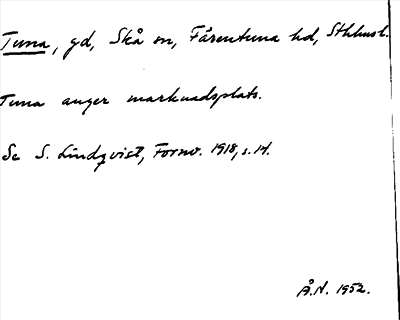 Tuna, gd, Skå sn, Färentuna hd, Sthlms l.
Tuna anger marknadsplats.
Se S. Lindqvist, Fornv. 1918, s. 14.
Å.N. 1952.